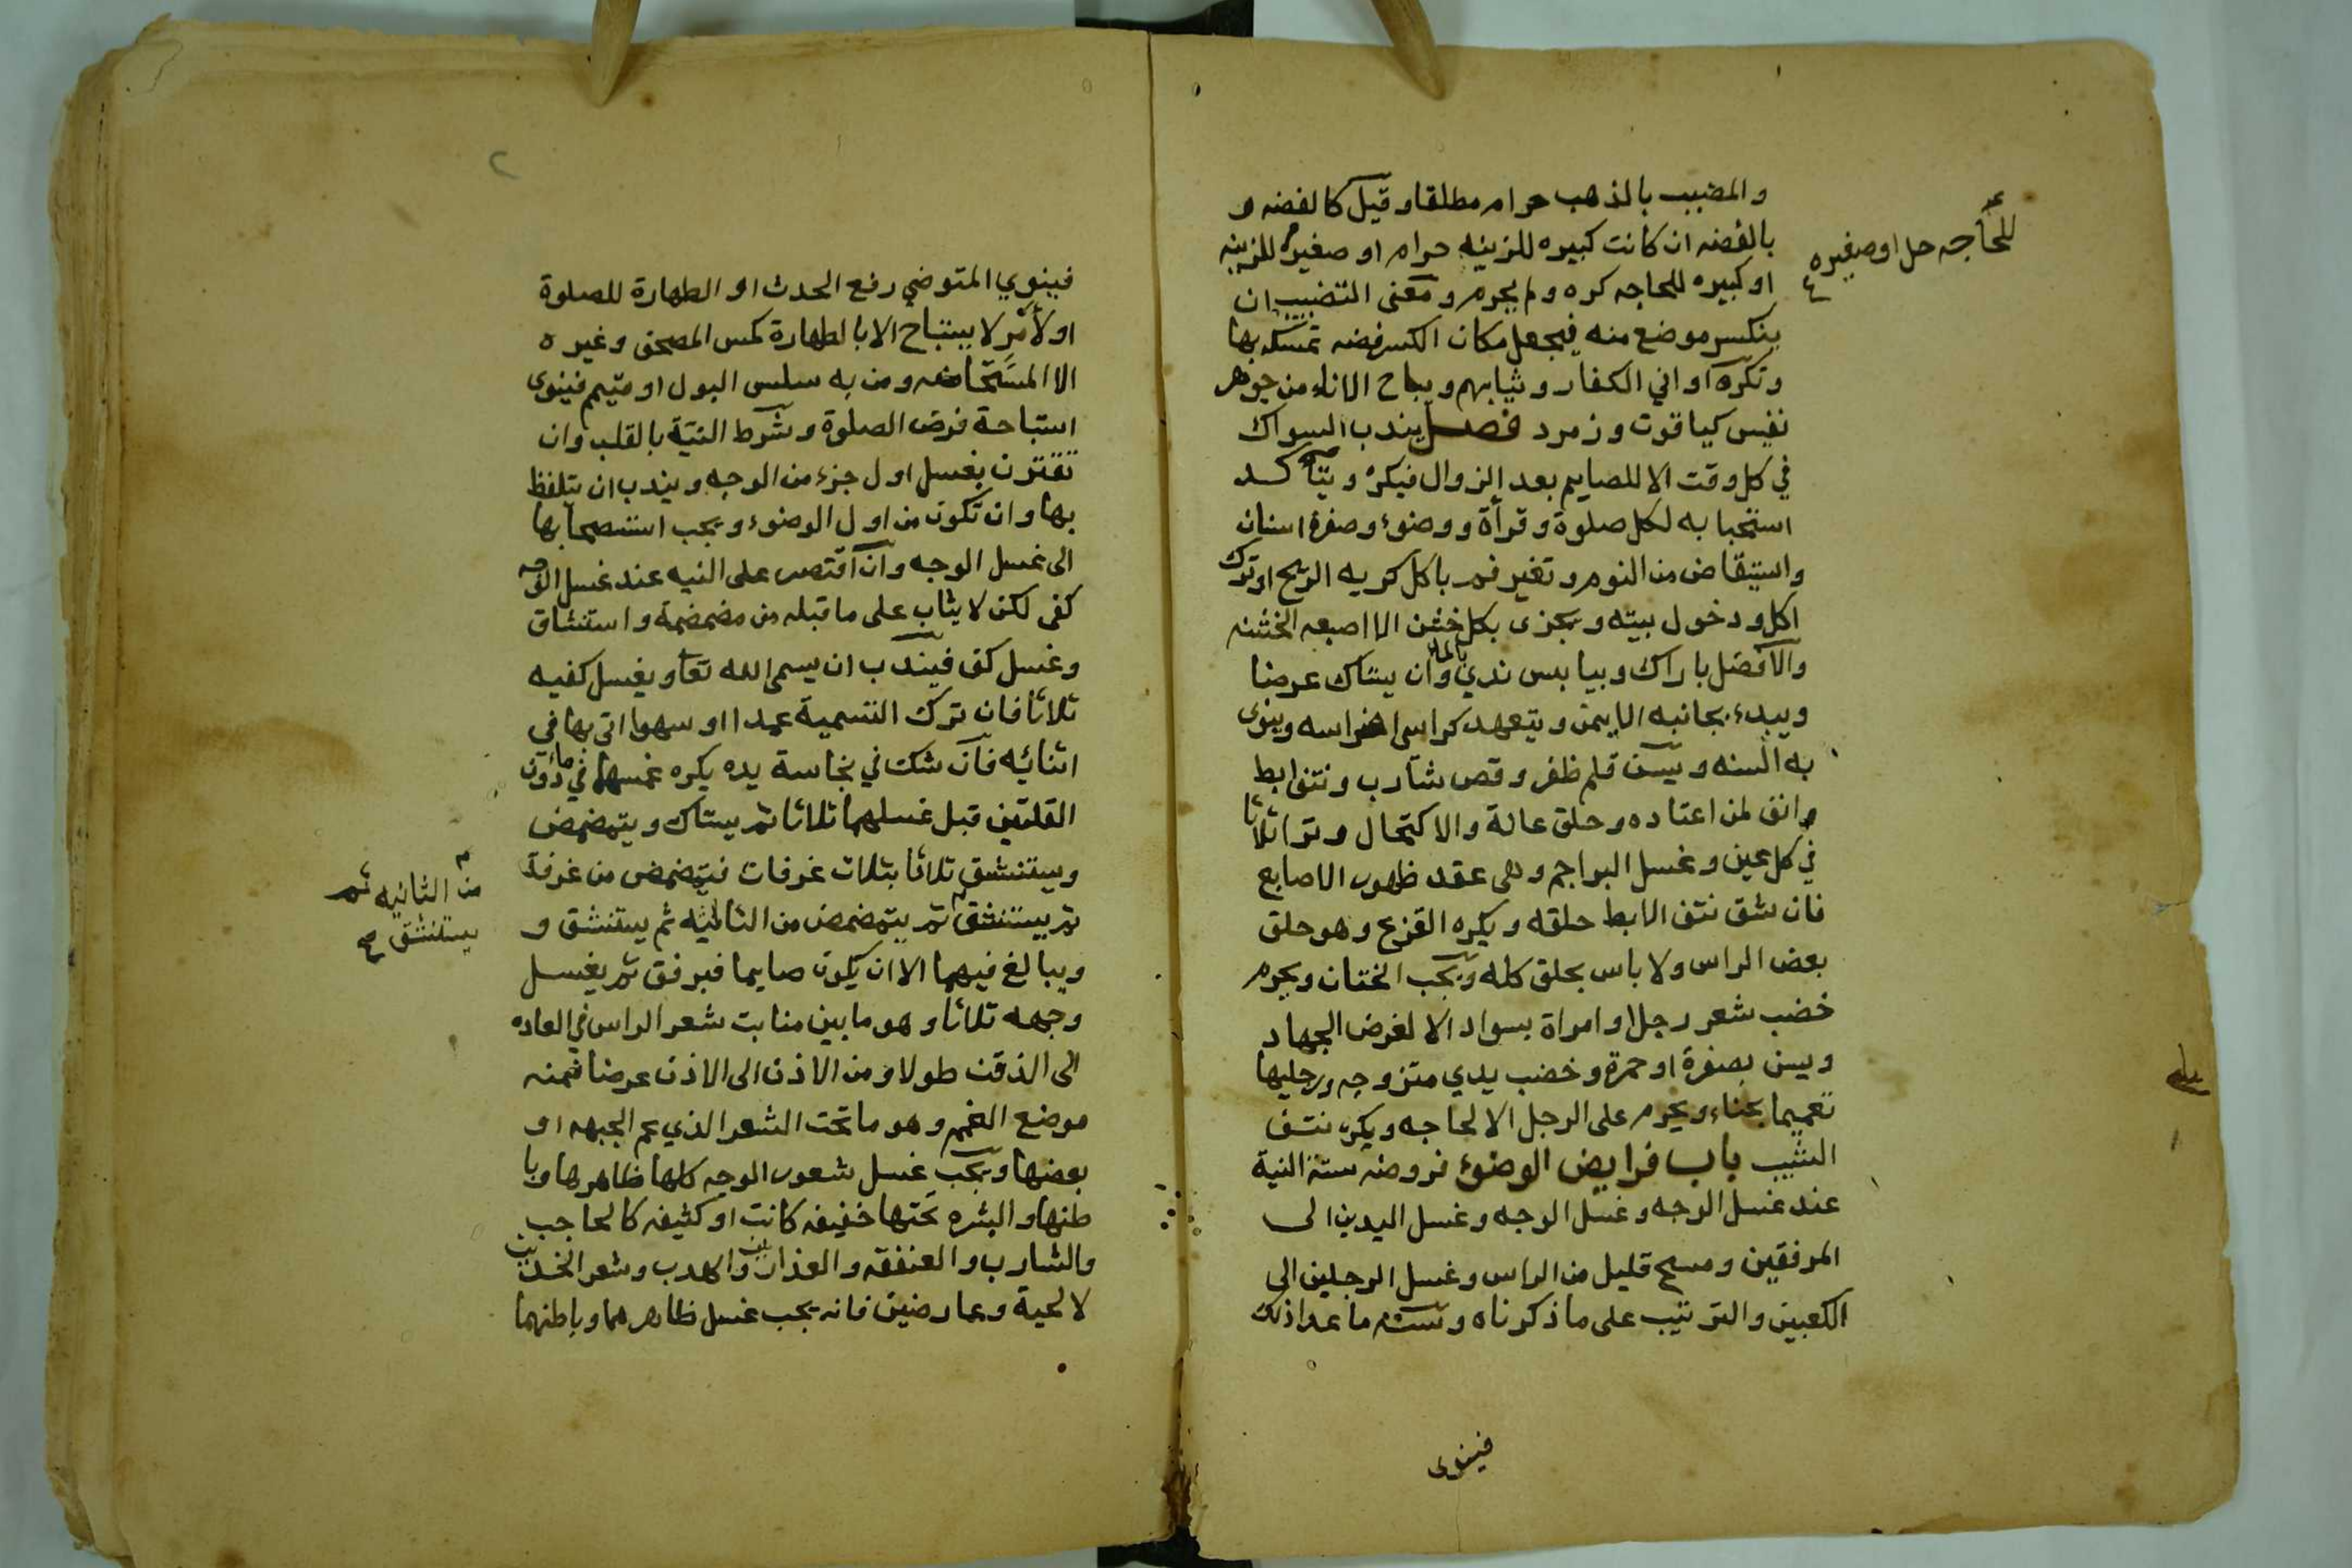 والمضبب بالذهب حرام مطلقا وقيل كالفضه و
بالفضه ان كانت كبيره للزينه حرام او صغيره للزينه
للحاجه حل او صغيره
او كبيره للحاجه كره ولم يحرم ومعنى التضبيب ان
ينكسر موضع منه فيجعل مكان الكسر فضه تمسكه بها
وتكره اواني الكفار وثيابهم ويباح الاناء من جوهر
نفيس كياقوت وزمرد فصل يندب السواك
في كل وقت الا للصايم بعد الزوال فيكره ويتأكد
استحبابه لكل صلوة وقرأة ووضوء وصفرة اسنان
واستيقاض من النوم وتغير فم باكل كريه الريح او ترك
اكل ودخول بيته ويجزى بكل خشن الا اصبعه الخشنه
والافضل باراك وبيابس ندي بالماء وان يستاك عرضا
ويبدء بجانبه الايمن ويتعهد كراسى اضراسه وينوى
به السنه ويسن قلم ظفر وقص شارب ونتف ابط
وانف لمن اعتاده وحلق عانة والاكتحال وترا ثلاثا
في كل عين وغسل البراجم وهى عقد ظهور الاصابع
فان شق نتف الابط حلقه ويكره القزع وهو حلق
بعض الراس ولا باس بحلق كله ويجب الختان ويحرم
خضب شعر رجل او امراة بسواد الا لغرض الجهاد
ويسن بصفرة او حمرة وخضب يدي متزوجه ورجليها
تعميما بحناء ويحرم على الرجل الا لحاجه ويكره نتف
الشيب باب فرايض الوضوء فروضه ستة النية
عند غسل الوجه وغسل الوجه وغسل اليدين الى
المرفقين ومسح قليل من الراس وغسل الرجلين الى
الكعبين والترتيب على ما ذكرناه وسننه ما عدا ذلك
فينوى
٢
فينوي المتوضي رفع الحدث او الطهارة للصلوة
او لأمر لا يستباح الا بالطهارة كمس المصحف وغيره
الا المستحاضه ومن به سلس البول او متيمم فينوى
استباحة فرض الصلوة وشرط النية بالقلب وان
تقترن بغسل اول جزء من الوجه ويندب ان يتلفظ
بها وان تكون من اول الوضوء ويجب استصحابها
الى غسل الوجه وان اقتصر على النيه عند غسل الوجه
كفى لكن لا يثاب على ما قبله من مضمضة واستنشاق
وغسل كف فيندب ان يسمى الله تعا ويغسل كفيه
ثلاثا فان ترك التسمية عمدا او سهوا اتى بها في
اثنائه فان شك في نجاسة يده يكره غمسها في ماء دون
القلتين قبل غسلهما ثلاثا ثم يستاك ويتمضمض
ويستنشق ثلاثا بثلاث غرفات فيتمضمض من غرفة
ثم يستنشق ثم يتمضمض من الثالثه ثم يستنشق و
من الثانيه ثم
يستنشق صح
ويبالغ فيهما الا ان يكون صايما فبرفق ثم يغسل
وجهه ثلاثا وهو ما بين منابت شعر الراس في العاده
الى الذقن طولا ومن الاذن الى الاذن عرضا فمنه
موضع الغمم وهو ما تحت الشعر الذي عم الجبهه او
بعضها ويجب غسل شعور الوجه كلها ظاهرها وبا
طنها والبشره تحتها خفيفه كانت او كثيفه كالحاجب
والشارب والعنفقه والعذارين والهدب وشعر الخدين
لا لحية وعارضين فانه يجب غسل ظاهرهما وباطنهما